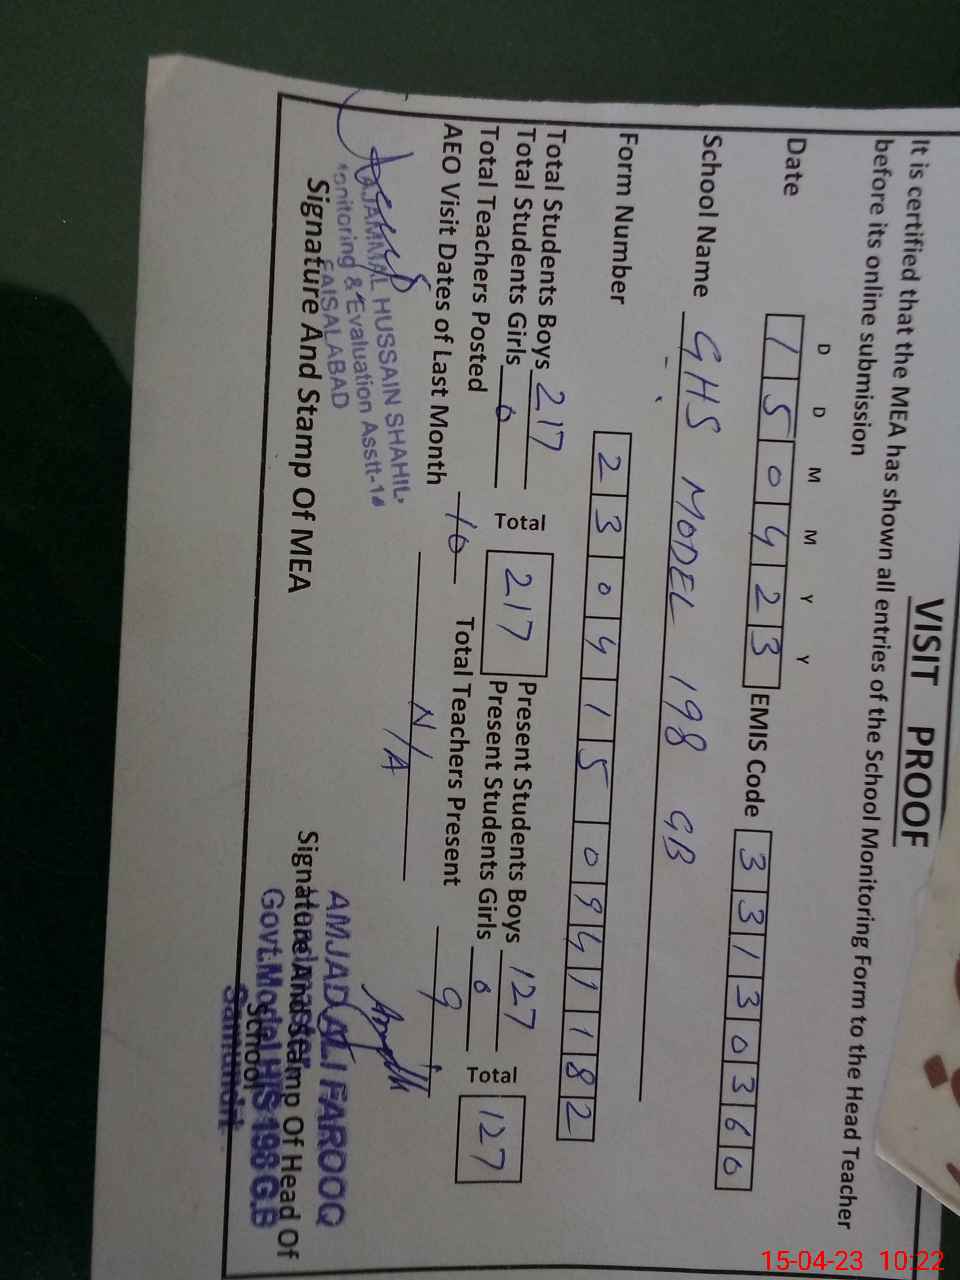 VISIT PROOF
It is certified that the MEA has shown all entries of the School Monitoring Form to the Head Teacher
before its online submission
D D M M Y Y
Date 150423 EMIS Code 33130360
School Name GHS MODEL 198 GB
Form Number 2304150941182
Total Students Boys 217 Total 217 Present Students Boys 127 Total 127
Total Students Girls 0 Present Students Girls 0
Total Teachers Posted 10 Total Teachers Present 9
AEO Visit Dates of Last Month N/A
AJAMMAL HUSSAIN SHAHIL
Monitoring & Evaluation Asstt-14
FAISALABAD
Signature And Stamp Of MEA
AMJAD ALI FAROOQ
Signature And Stamp Of Head Of
School
Govt. Model H/S 198 G.B
Samundri
15-04-23 10:22